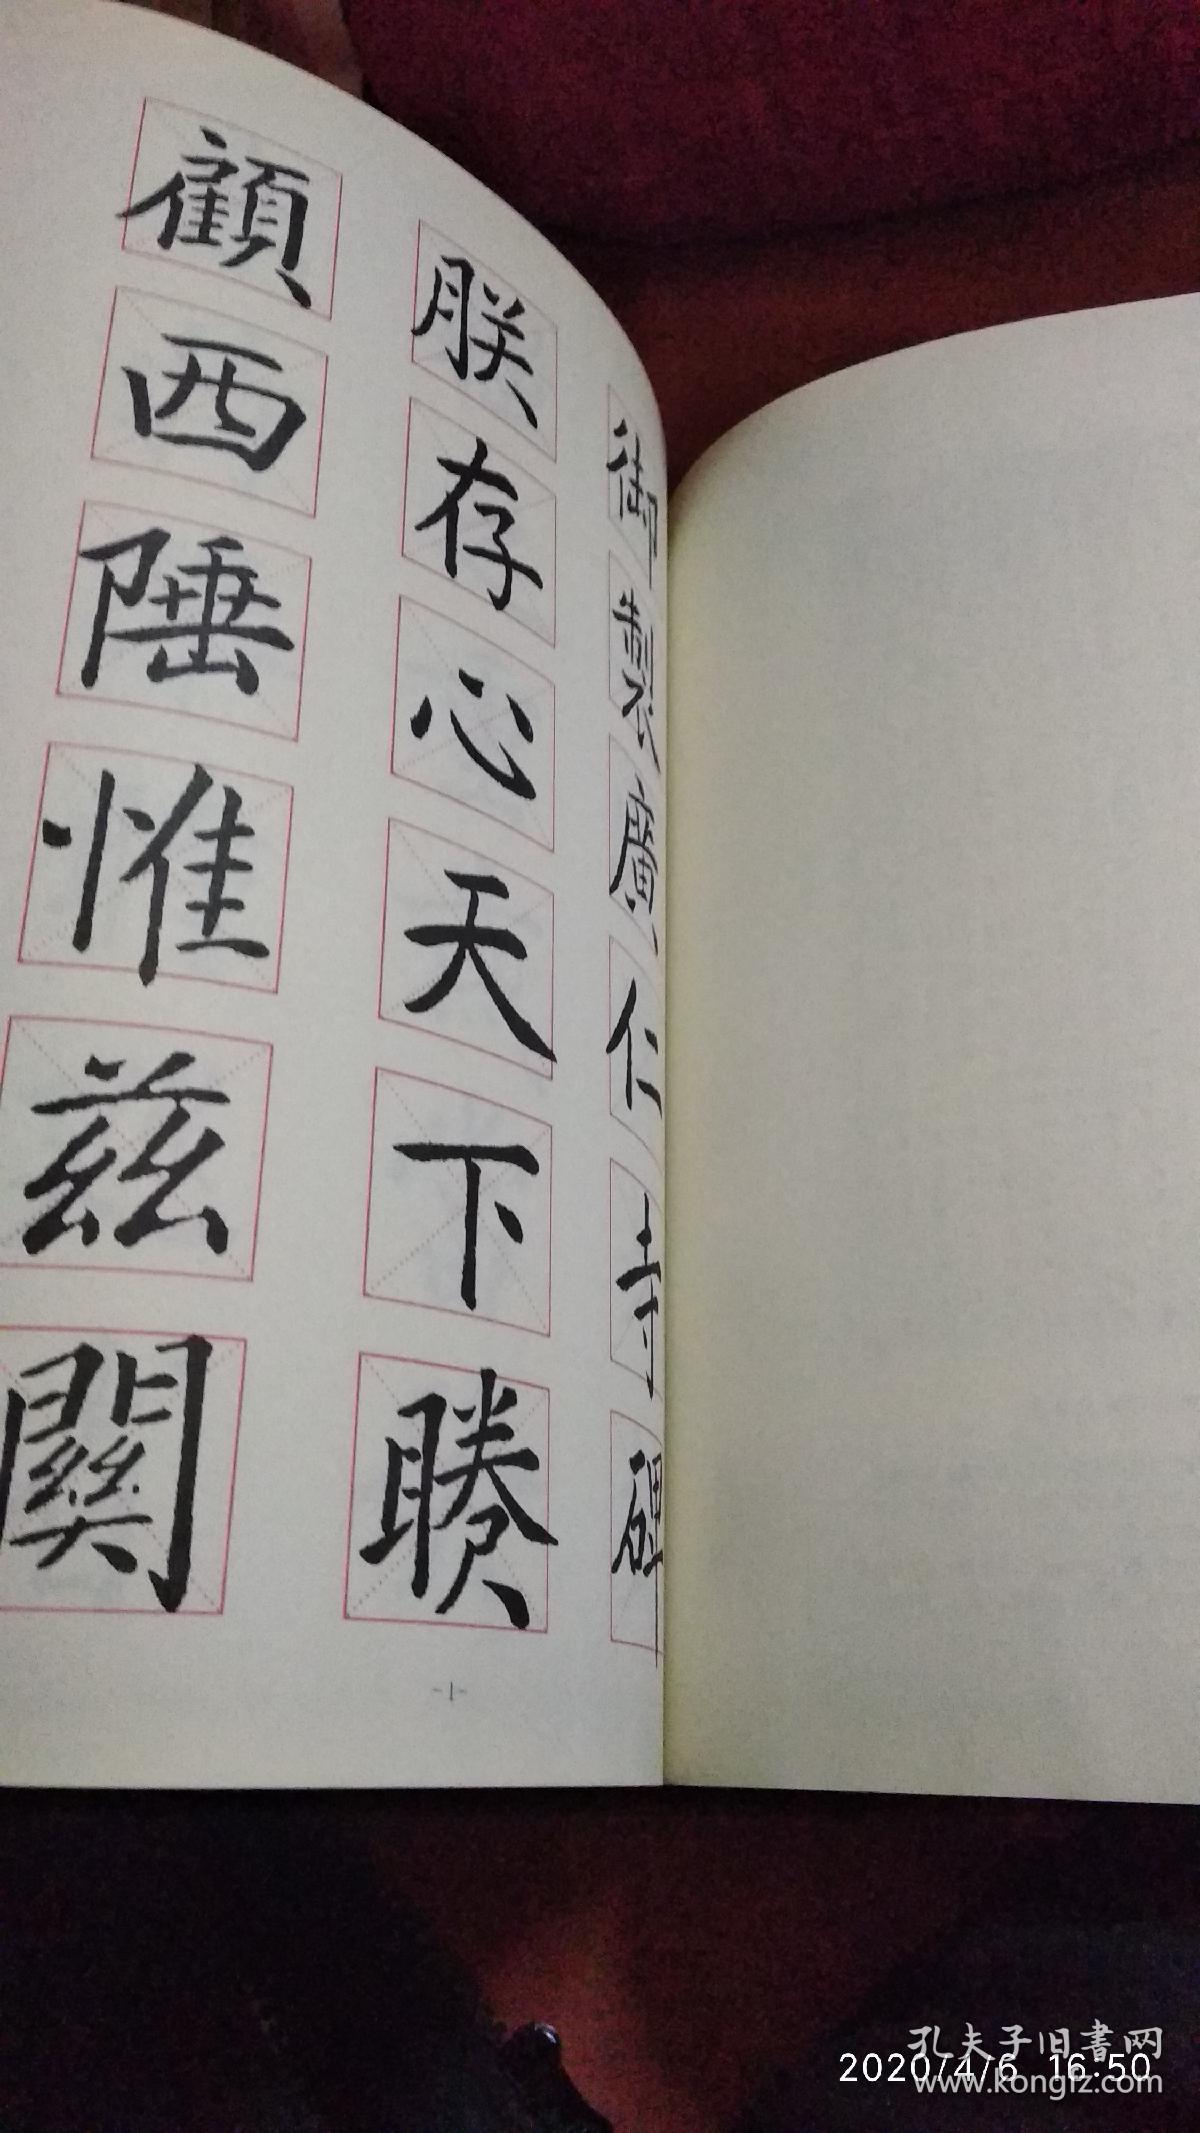 御製廣仁寺碑
朕存心天下睠
顧西陲惟兹關
-1-
孔夫子旧書网
2020/4/6 16:50
www.kongfz.com